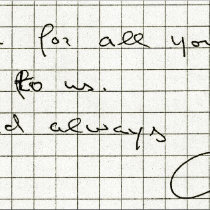 for all you
to us.
d always